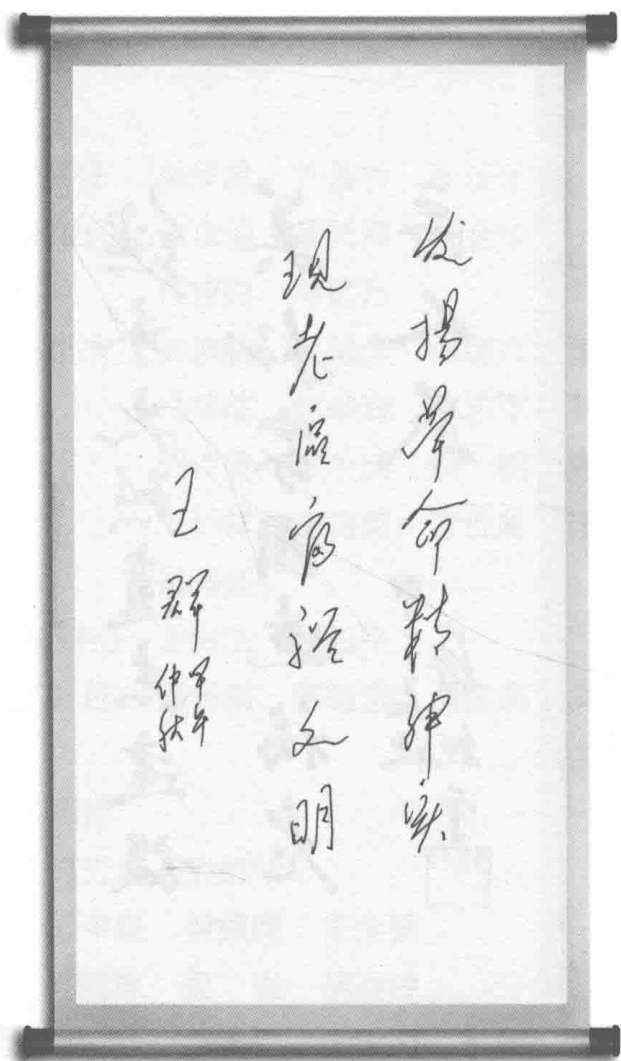 发揚革命精神实
現老區富裕文明
王群
甲午
仲秋